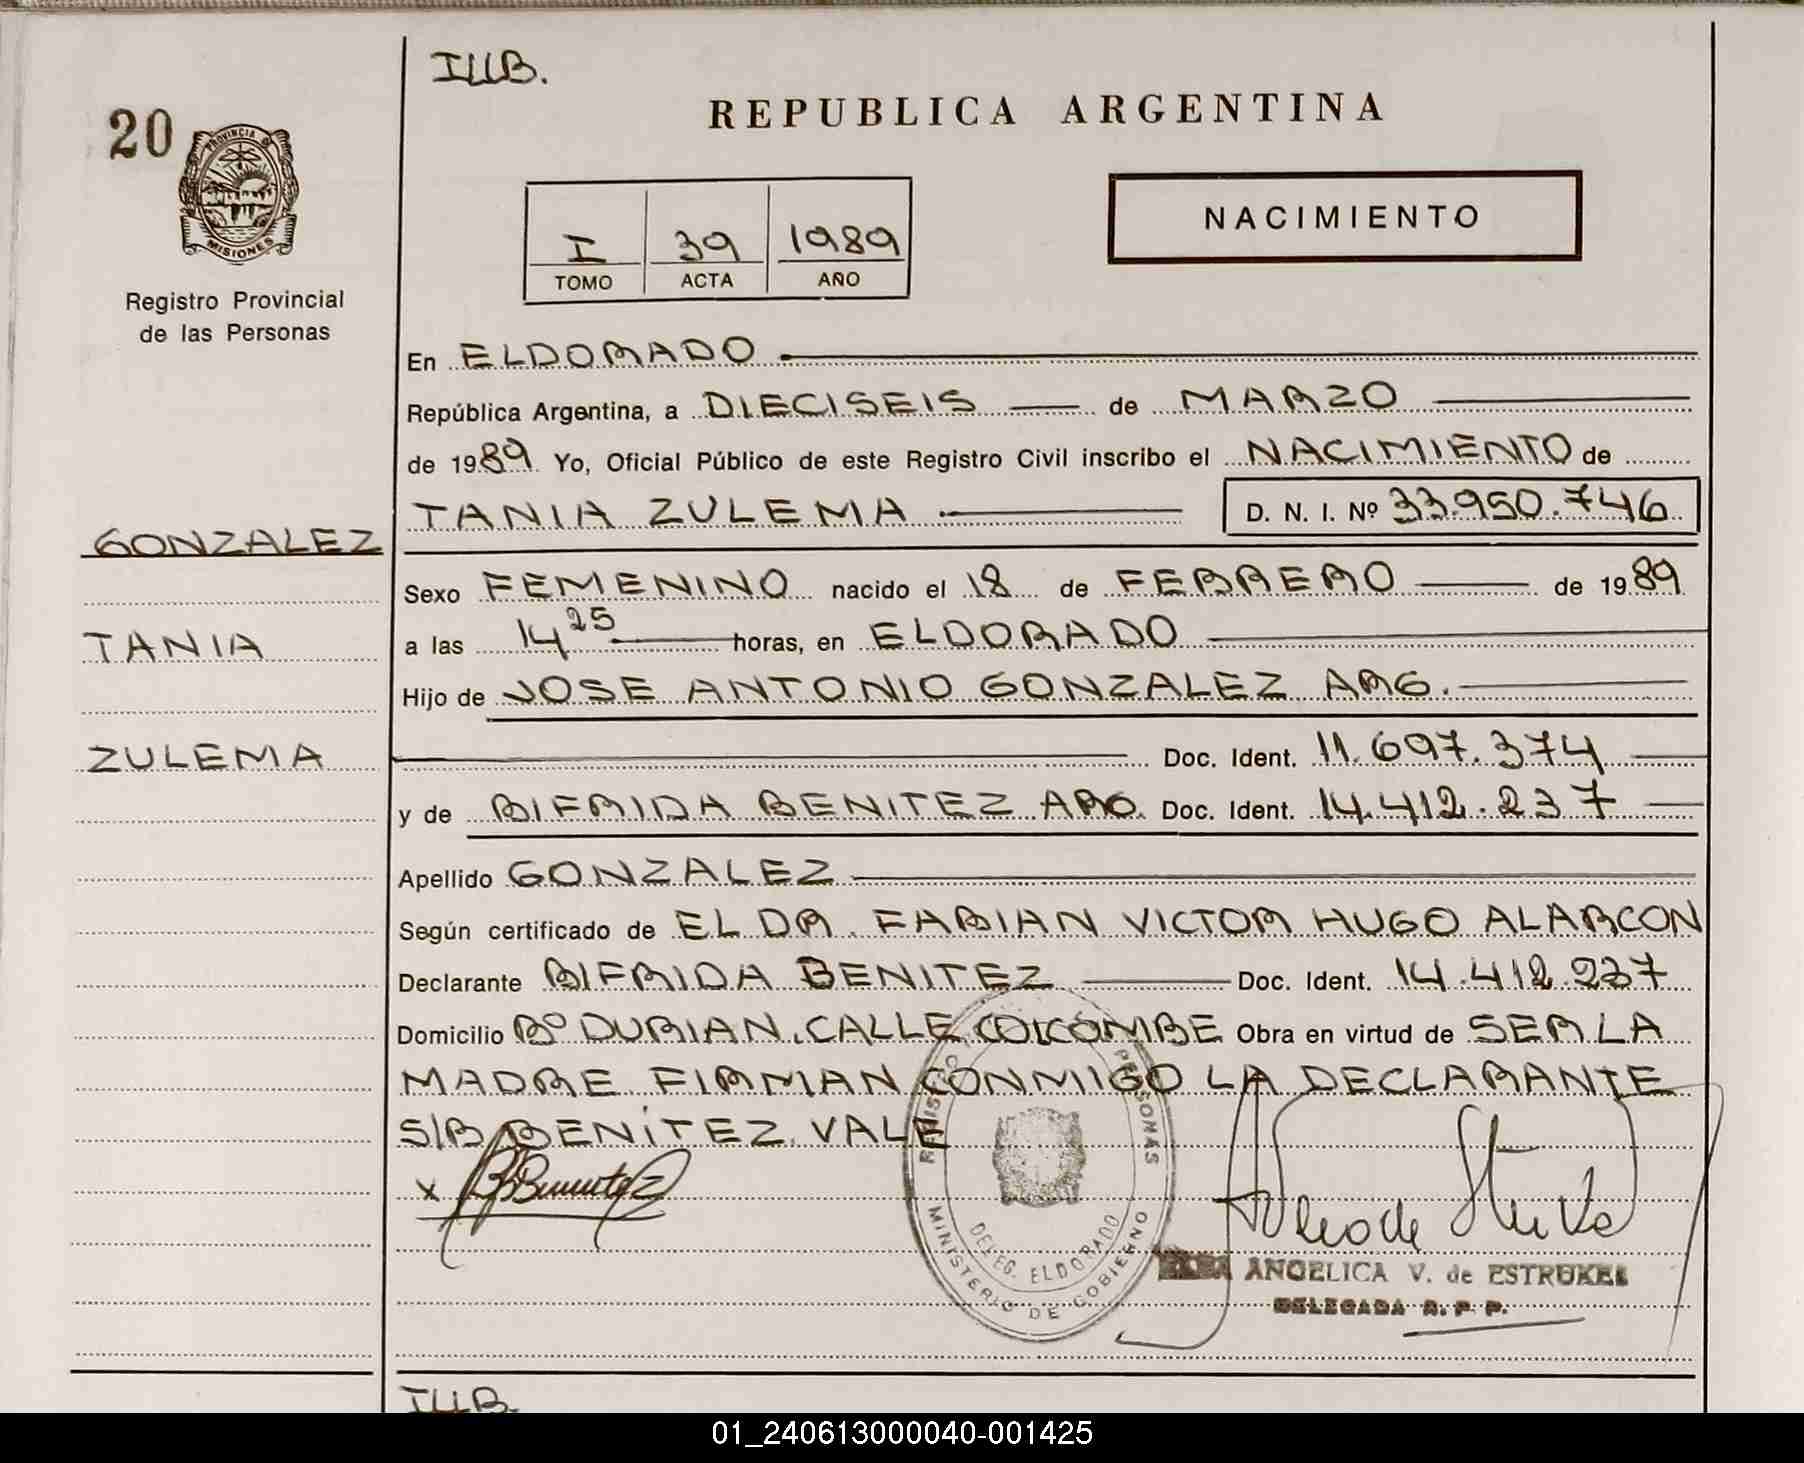 I LL B.
20
REPUBLICA ARGENTINA
PROVINCIA D
MISIONES
NACIMIENTO
I 39 1989
TOMO ACTA AÑO
Registro Provincial
de las Personas
En ELDORADO
República Argentina, a DIECISEIS de MARZO
de 1989 Yo, Oficial Público de este Registro Civil inscribo el NACIMIENTO de
TANIA ZULEMA D. N. I. Nº 33.950.746
GONZALEZ
Sexo FEMENINO nacido el 18 de FEBRERO de 1989
TANIA
a las 14 25 horas, en ELDORADO
Hijo de JOSE ANTONIO GONZALEZ ARG.
ZULEMA
Doc. Ident. 11.697.374
y de BIFRIDA BENITEZ ARG. Doc. Ident. 14.412.237
Apellido GONZALEZ
Según certificado de EL DR. FABIAN VICTOR HUGO ALARCON
Declarante BIFRIDA BENITEZ Doc. Ident. 14.412.237
Domicilio Bº DURIAN. CALLE Obra en virtud de SER LA
MADRE FIRMAN CONMIGO LA DECLARANTE
S/B BENITEZ VALE
x B. Benitez
DELEG. ELDORADO
MINISTERIO DE GOBIERNO
ANGELICA V. de ESTRUKEL
DELEGADA R. P. P.
I LL B.
01_240613000040-001425